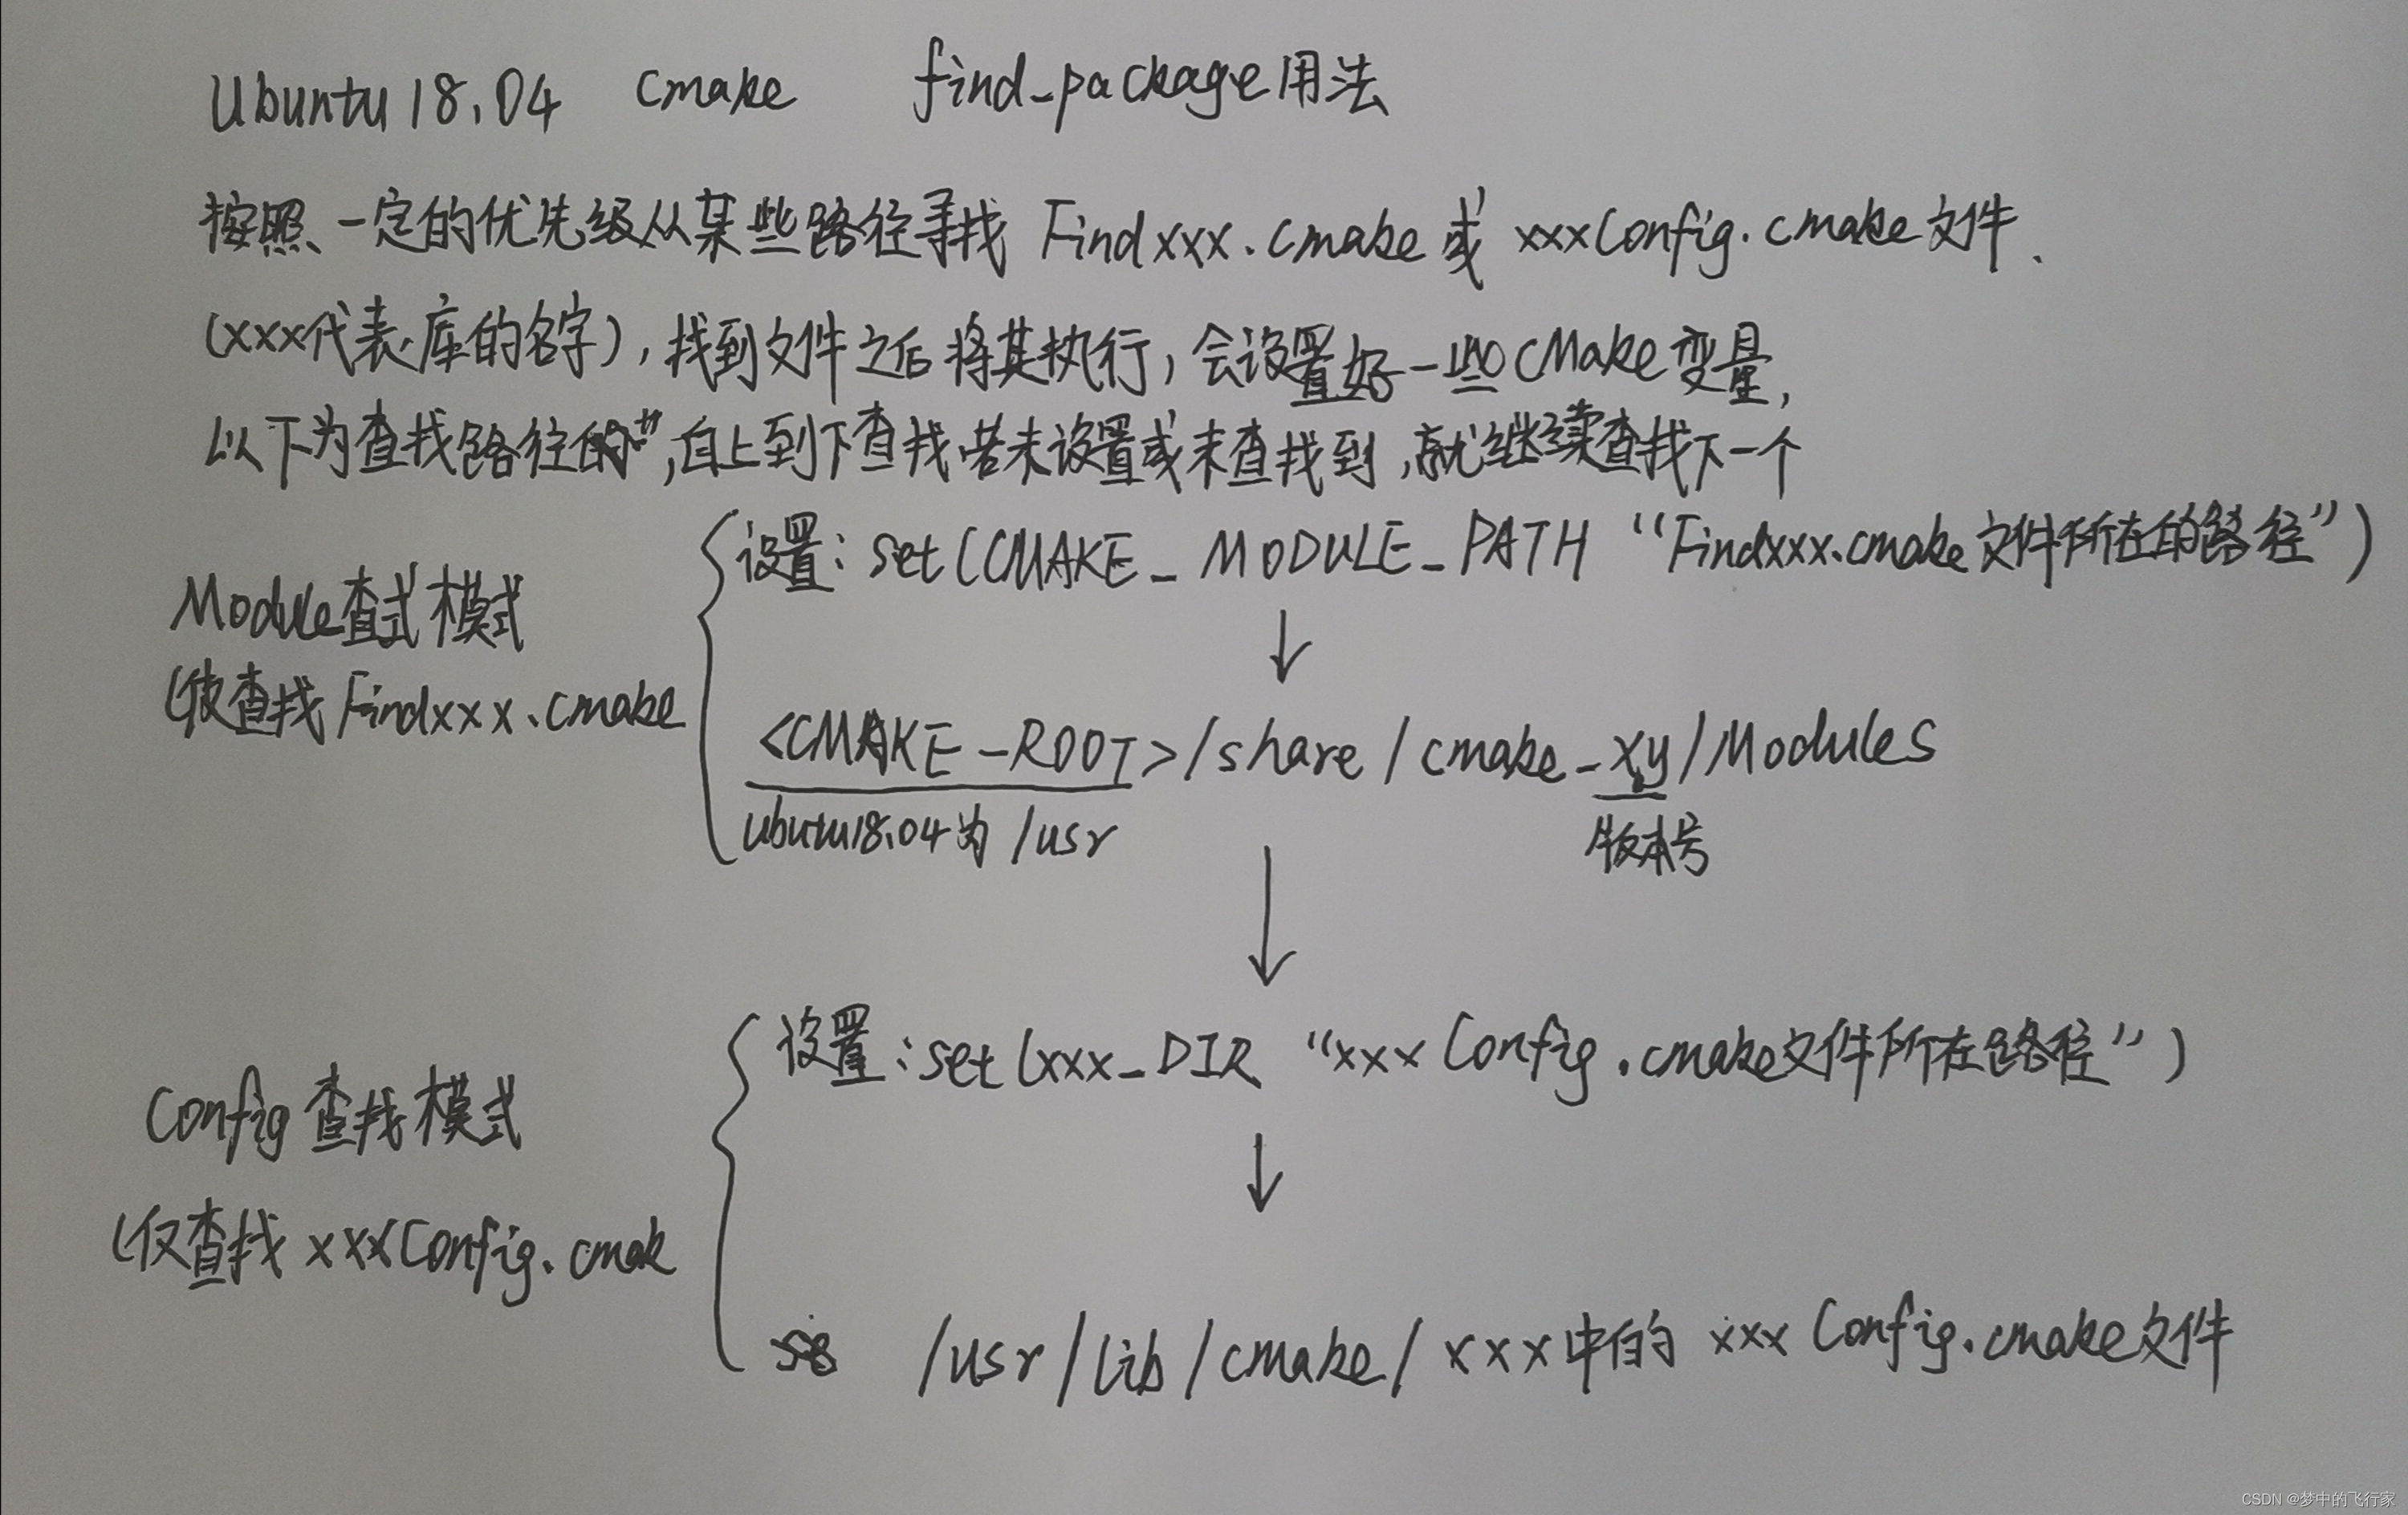 Ubuntu 18.04 cmake find_package用法
按照一定的优先级从某些路径寻找 Findxxx.cmake 或 xxxConfig.cmake文件.
(xxx代表库的名字),找到文件之后将其执行,会设置好一些CMake变量,
以下为查找路径的,自上到下查找若未设置或未查找到,就继续查找下一个
设置:set(CMAKE_MODULE_PATH “Findxxx.cmake文件所在的路径”)
Module查式模式
(仅查找 Findxxx.cmake
↓
<CMAKE-ROOT>/share/cmake-xy/Modules
ubutu18.04为 /usr
版本号
↓
设置:set(xxx_DIR “xxxConfig.cmake文件所在路径”)
Config 查找模式
↓
(仅查找 xxxConfig.cmak
/usr/lib/cmake/xxx中的 xxxConfig.cmake文件
CSDN @梦中的飞行家